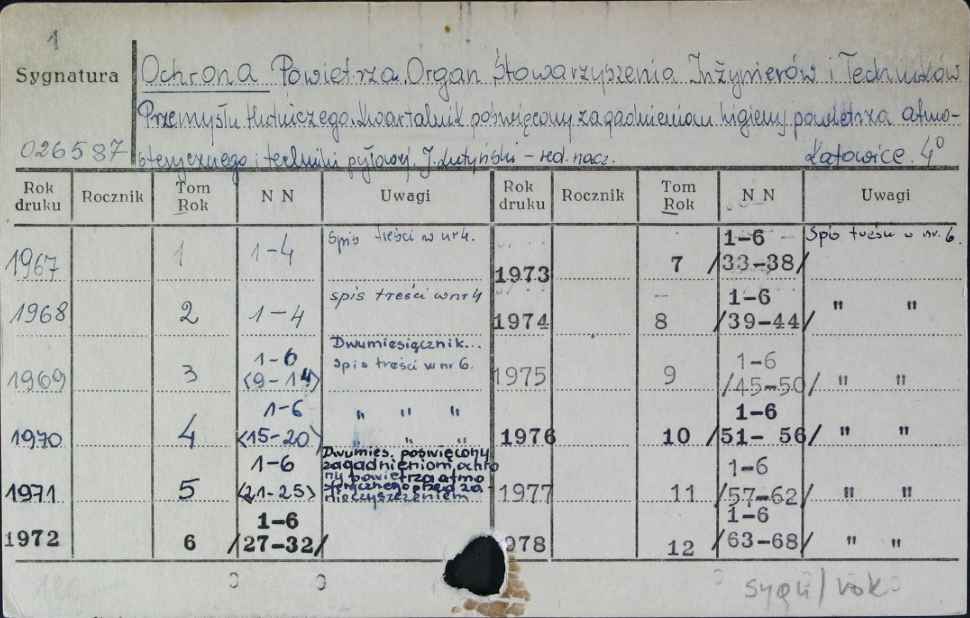 1
Sygnatura
Ochrona Powietrza. Organ Stowarzyszenia Inżynierów i Techników
Przemysłu Hutniczego. Kwartalnik poświęcony zagadnieniom higieny powietrza atmo-
026587 sferycznego i techniki pyłowej. J. Lutyński - red. nacz. Katowice. 4°
Rok druku Rocznik Tom Rok N N Uwagi Rok druku Rocznik Tom Rok N N Uwagi
1967 1 1-4 Spis treści w nr 4. 1973 7 1-6 /33-38/ Spis treści w nr. 6.
1968 2 1-4 spis treści w nr 4 1974 8 1-6 /39-44/ " "
1969 3 1-6 <9-14> Dwumiesiącznik... Spis treści w nr 6. 1975 9 1-6 /45-50/ " "
1970 4 1-6 <15-20> " " " " " 1976 10 1-6 /51- 56/ " "
1971 5 1-6 <21-25> Dwumies. poświęcony zagadnieniom ochro ny powietrza atmo sferycznego przed za nieczyszczeniem 1977 11 1-6 /57-62/ " "
1972 6 1-6 /27-32/ 978 12 1-6 /63-68/ " "